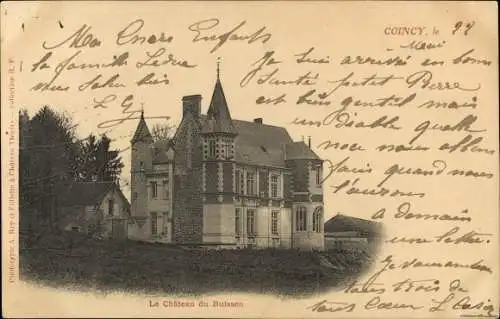 COINCY, le 27
Mai
Ma Chère Enfant
la famille Leduc
vous salue bien
Je suis arrivée en bonne
Santée petit Pierre
est bien gentil mais
un diable quelle
noce nous allons
faire quand nous
l'aurons
a demain
une lettre.
Je vous embrasse
tous trois de
tous cœur
Le Château du Buisson
Phototypie A. Rep. et Filliette à Château-Thierry. - Collection R. F.